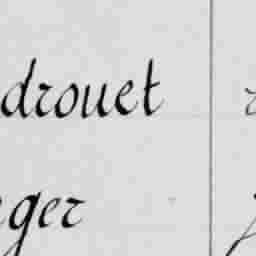 drouet
ger